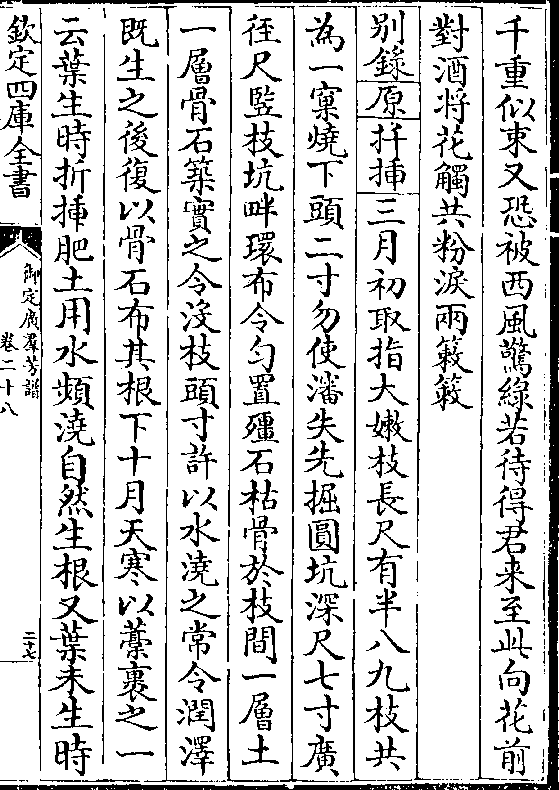 千重似束又恐被西風驚綠若待得君来至此向花前
對酒将花觸共粉淚兩簌簌
别錄原扦揷三月初取指大嫩枝長尺有半八九枝共
為一窠燒下頭二寸勿使瀋失先掘圓坑深尺七寸廣
徑尺竪枝坑畔環布令匀置礓石枯骨於枝間一層土
一層骨石築實之令没枝頭寸許以水澆之常令潤澤
既生之後復以骨石布其根下十月天寒以藁裹之一
云葉生時折揷肥土用水頻澆自然生根又葉未生時
欽定四庫全書
御定廣羣芳譜
卷二十八
二十七